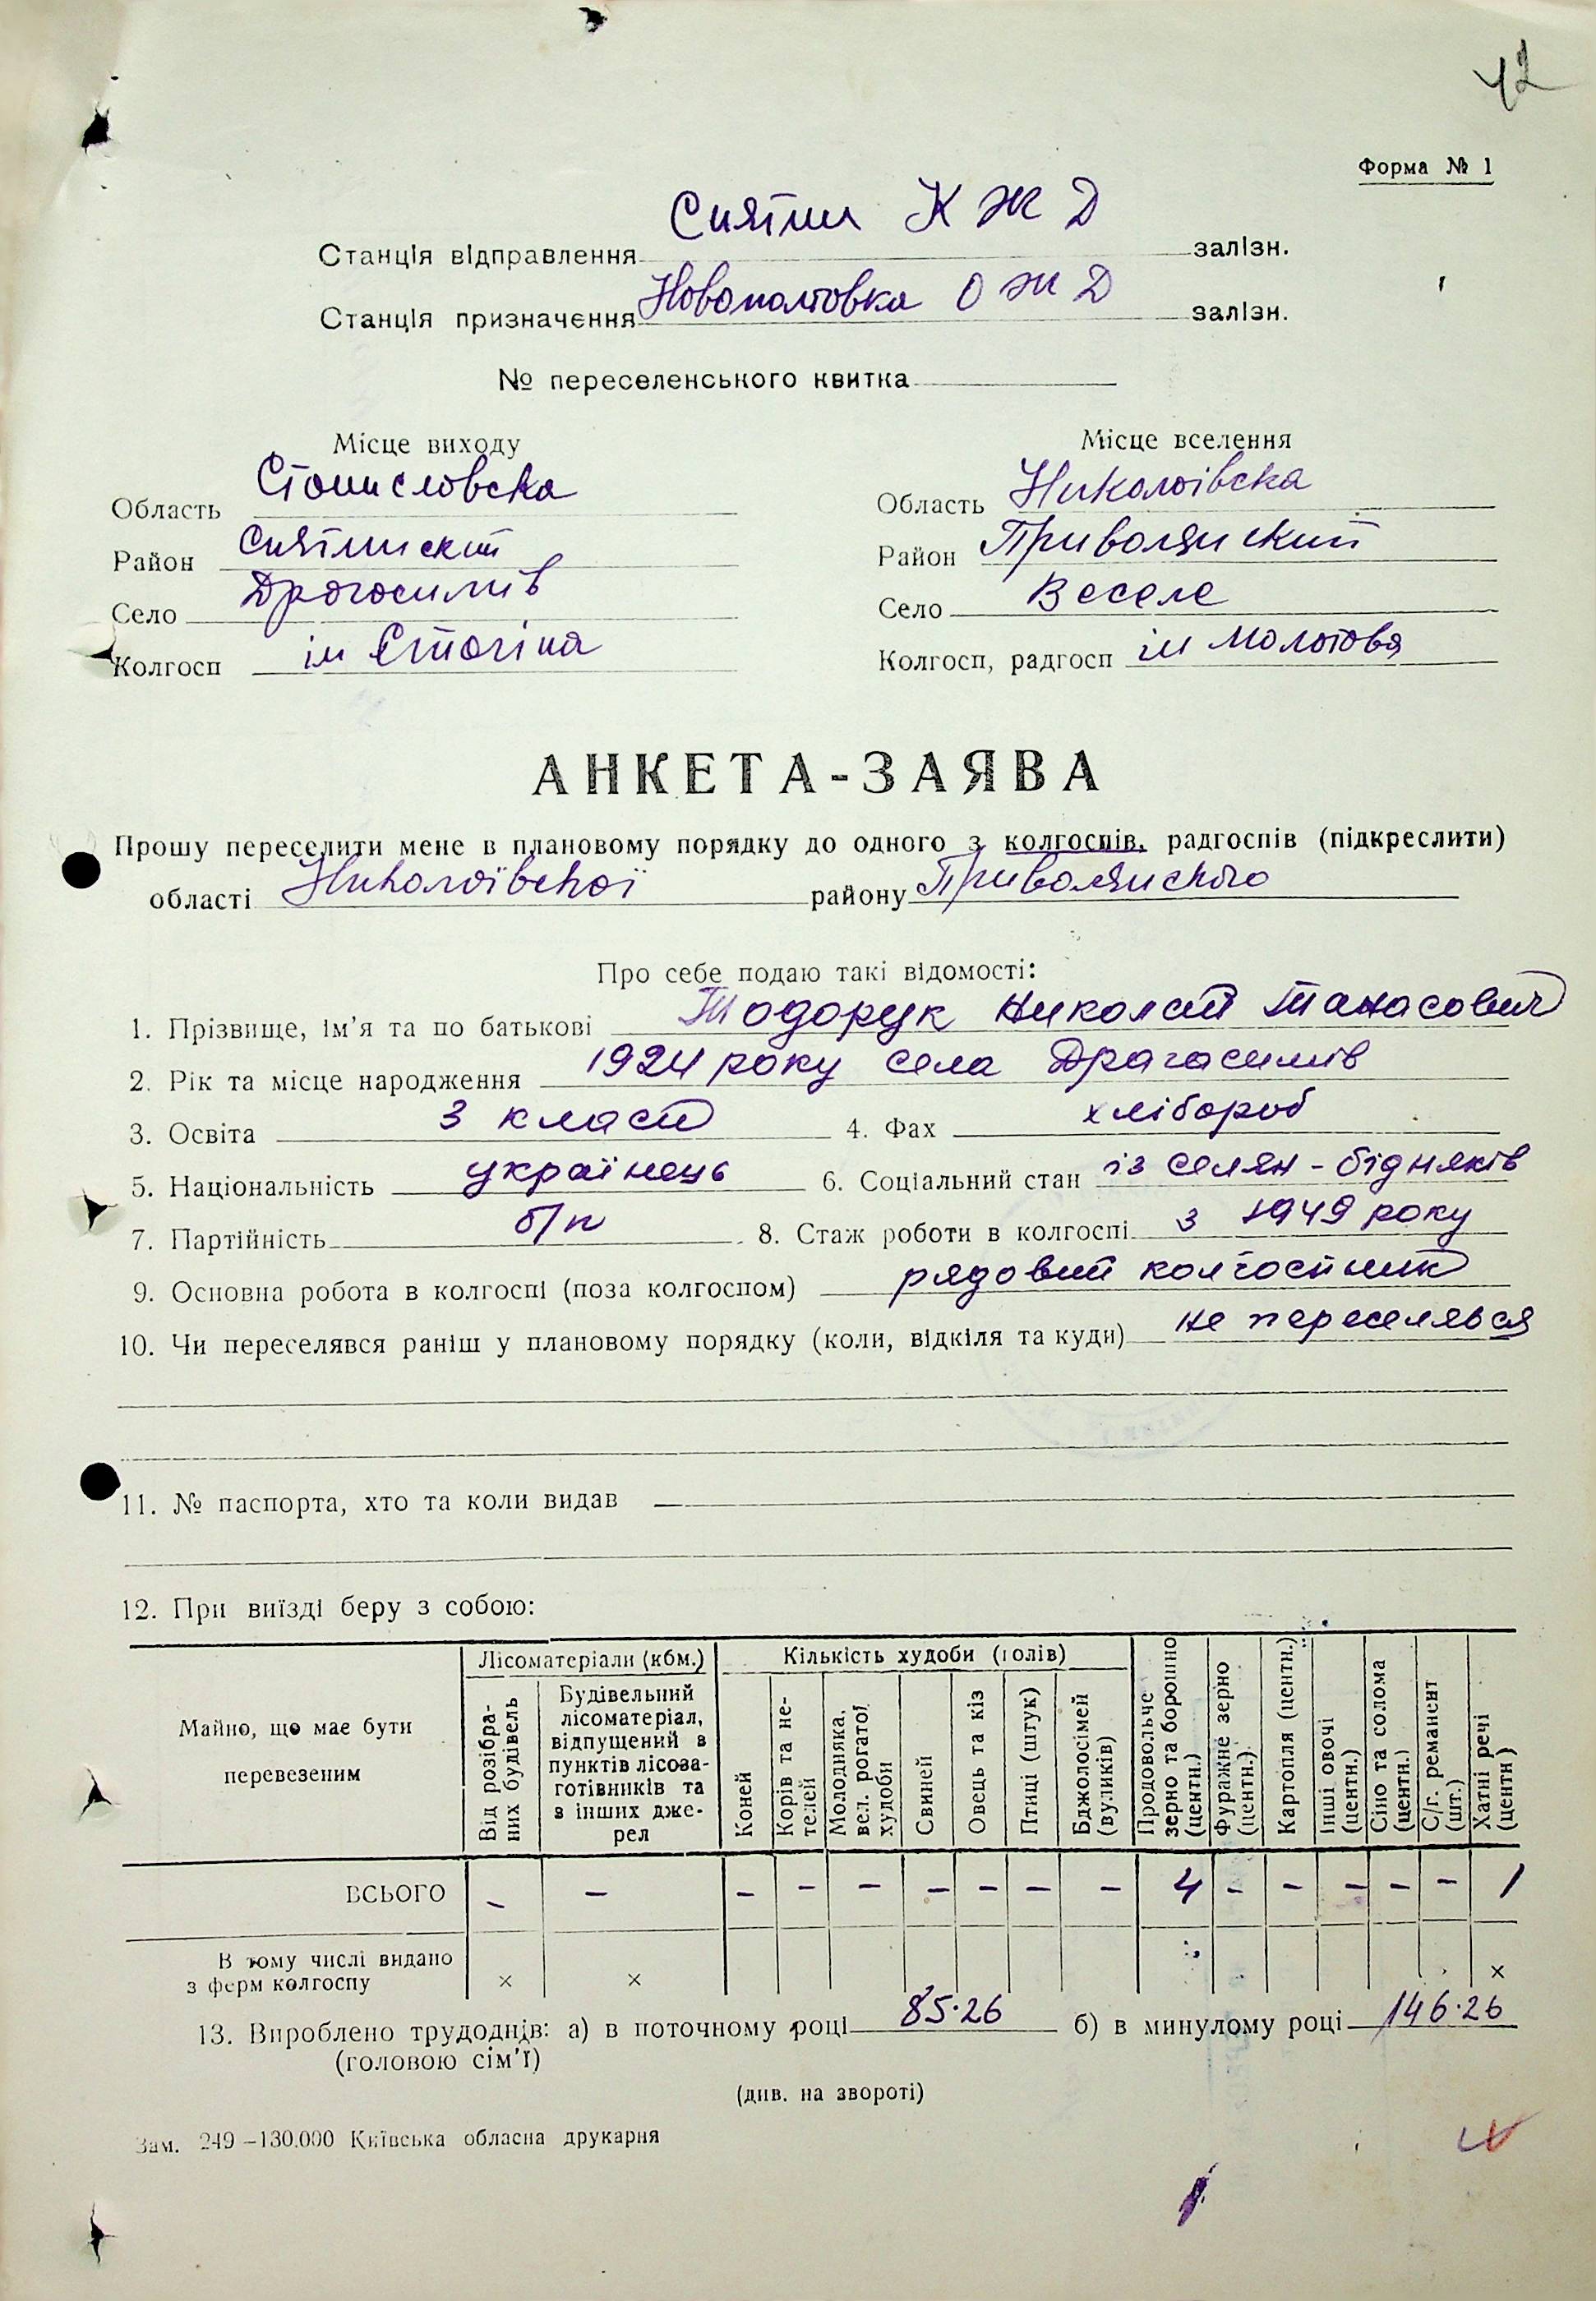 42
Форма № 1
Станція відправлення Снятин К Ж Д залізн.
Станція призначення Новополтовка О Ж Д залізн.
№ переселенського квитка
Місце виходу
Область Станиславська
Район Снятинский
Село Драгосимів
Колгосп ім Сталіна
Місце вселення
Область Николаївска
Район Привольянский
Село Веселе
Колгосп, радгосп ім Молотова
АНКЕТА-ЗАЯВА
Прошу переселити мене в плановому порядку до одного з колгоспів, радгоспів (підкреслити)
області Николаївської району Привольянского
Про себе подаю такі відомості:
1. Прізвище, ім’я та по батькові Тодорук Николай Танасович
2. Рік та місце народження 1924 року села Драгасимів
3. Освіта 3 класи 4. Фах хлібороб
5. Національність українець 6. Соціальний стан із селян - бідняків
7. Партійність б/п 8. Стаж роботи в колгоспі з 1949 року
9. Основна робота в колгоспі (поза колгоспом) рядовий колгоспник
10. Чи переселявся раніш у плановому порядку (коли, відкіля та куди) не переселявся
11. № паспорта, хто та коли видав
12. При виїзді беру з собою:
Майно, що має бути перевезеним
Лісоматеріали (кбм.)
Від розібраних будівель
Будівельний лісоматеріал, відпущений з пунктів лісозаготівників та з інших джерел
Кількість худоби (голів)
Коней
Корів та нетелей
Молодняка, вел. рогатої худоби
Свиней
Овець та кіз
Птиці (штук)
Бджолосімей (вуликів)
Продовольче зерно та борошно (центн.)
Фуражне зерно (центн.)
Картопля (центн.)
Інші овочі (центн.)
Сіно та солома (центн.)
С/г. реманент (шт.)
Хатні речі (центн)
ВСЬОГО - - - - - - - - - 4 - - - - - 1
В тому числі видано з ферм колгоспу × × ×
13. Вироблено трудоднів: а) в поточному році 85·26 б) в минулому році 146·26
(головою сім’ї)
(див. на звороті)
Зам. 249—130.000 Київська обласна друкарня